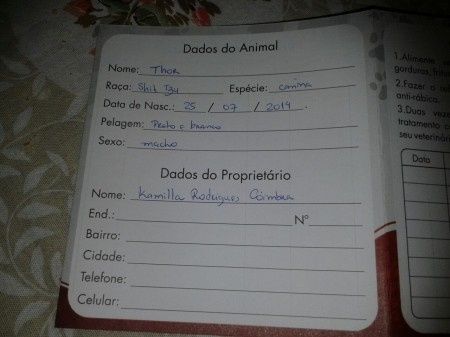 Dados do Animal
Nome: Thor
Raça: Shih Tzu Espécie: canina
Data de Nasc.: 25 / 07 / 2014
Pelagem: Preto e branco
Sexo: macho
Dados do Proprietário
Nome: Kamilla Rodrigues Coimbra
End.: Nº
Bairro:
Cidade:
Telefone:
Celular:
1.Alimente
gorduras, frit
2.Fazer o
anti-rábica.
3.Duas vez
tratamento c
seu veterinár
Data